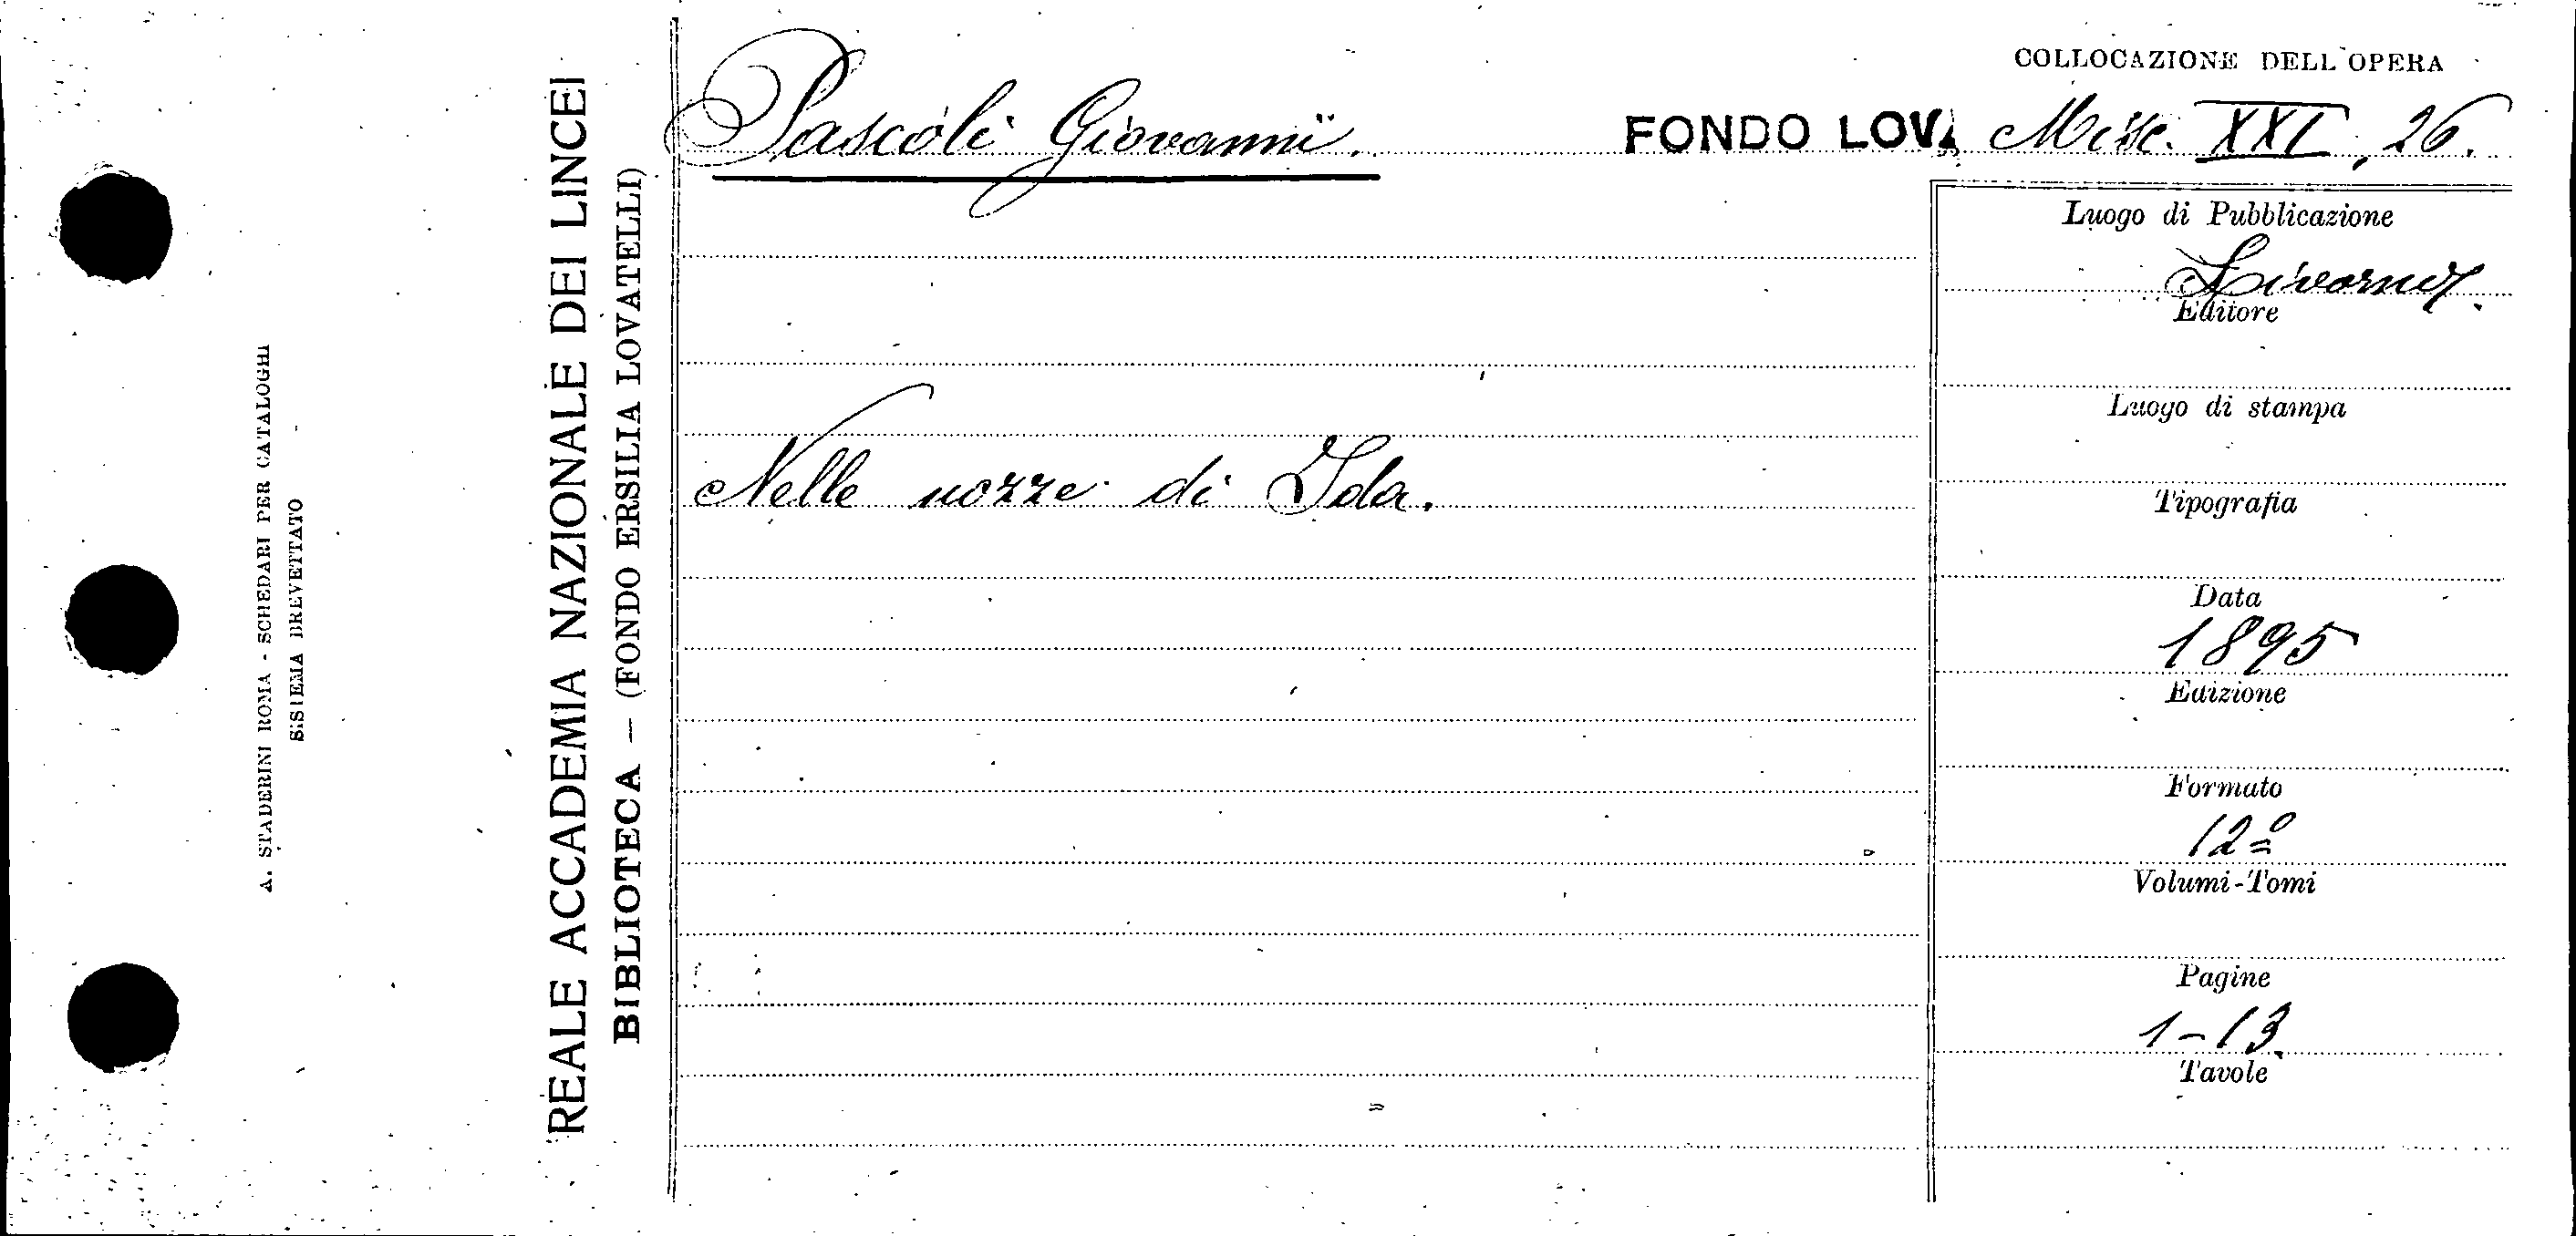 A. STADERINI ROMA - SCHEDARI PER CATALOGHI
SISTEMA BREVETTATO
REALE ACCADEMIA NAZIONALE DEI LINCEI
BIBLIOTECA — (FONDO ERSILIA LOVATELLI)
COLLOCAZIONE DELL'OPERA
Pascoli Giovanni. FONDO LOV. Misc. XXI, 26.
Luogo di Pubblicazione
Livorno.
Editore
Luogo di stampa
Nelle nozze di Ida.
Tipografia
Data
1895
Edizione
Formato
12º
Volumi-Tomi
Pagine
1-13.
Tavole